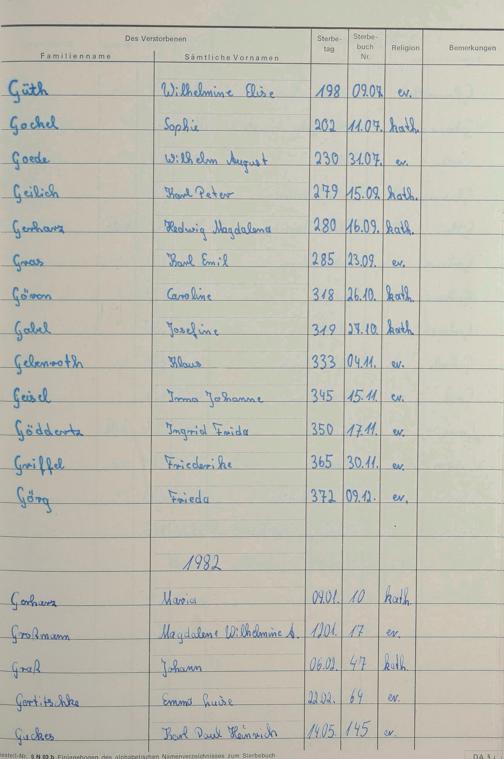 Des Verstorbenen Sterbe- Sterbe- Religion Bemerkungen
Familienname Sämtliche Vornamen tag buch Nr.
Güth Wilhelmine Elise 198 09.07. ev.
Gochel Sophie 202 11.07. kath.
Goede Wilhelm August 230 31.07. ev.
Geilich Karl Peter 279 15.09. kath.
Gerharz Hedwig Magdalena 280 16.09. kath.
Gras Karl Emil 285 23.09. ev.
Caroline 318 26.10. kath.
Gabel Josefine 319 27.10. kath
Gelenroth Klaus 333 04.11. ev.
Geisel Irma Johanne 345 15.11. ev.
Göddertz Ingrid Frida 350 17.11. ev.
Griffel Friederike 365 30.11. ev.
Görg Frieda 372 09.12. ev.
1982
Gerharz Maria 09.01. 10 kath
Großmann Magdalene Wilhelmine A. 1201. 17 ev.
Graß Johann 06.02. 47 kath
Gortitschke Emma Luise 22.02. 64 ev.
Guckes Karl Paul Heinrich 14.05. 145 ev.
Einlegebogen des alphabetischen Namenverzeichnisses zum Sterbebuch